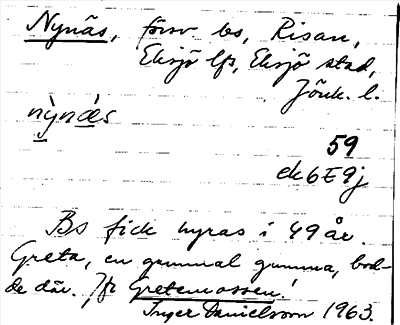 Nynäs, förv bs, Risan,
Eksjö lfs, Eksjö stad,
Jönk. l.
nỳnæ̀s
59
ek6E9j
Bs fick hyras i 49 år.
Greta, en gammal gumma, bod-
de där. Jfr Gretemossen!
Inger Danielsson 1963.